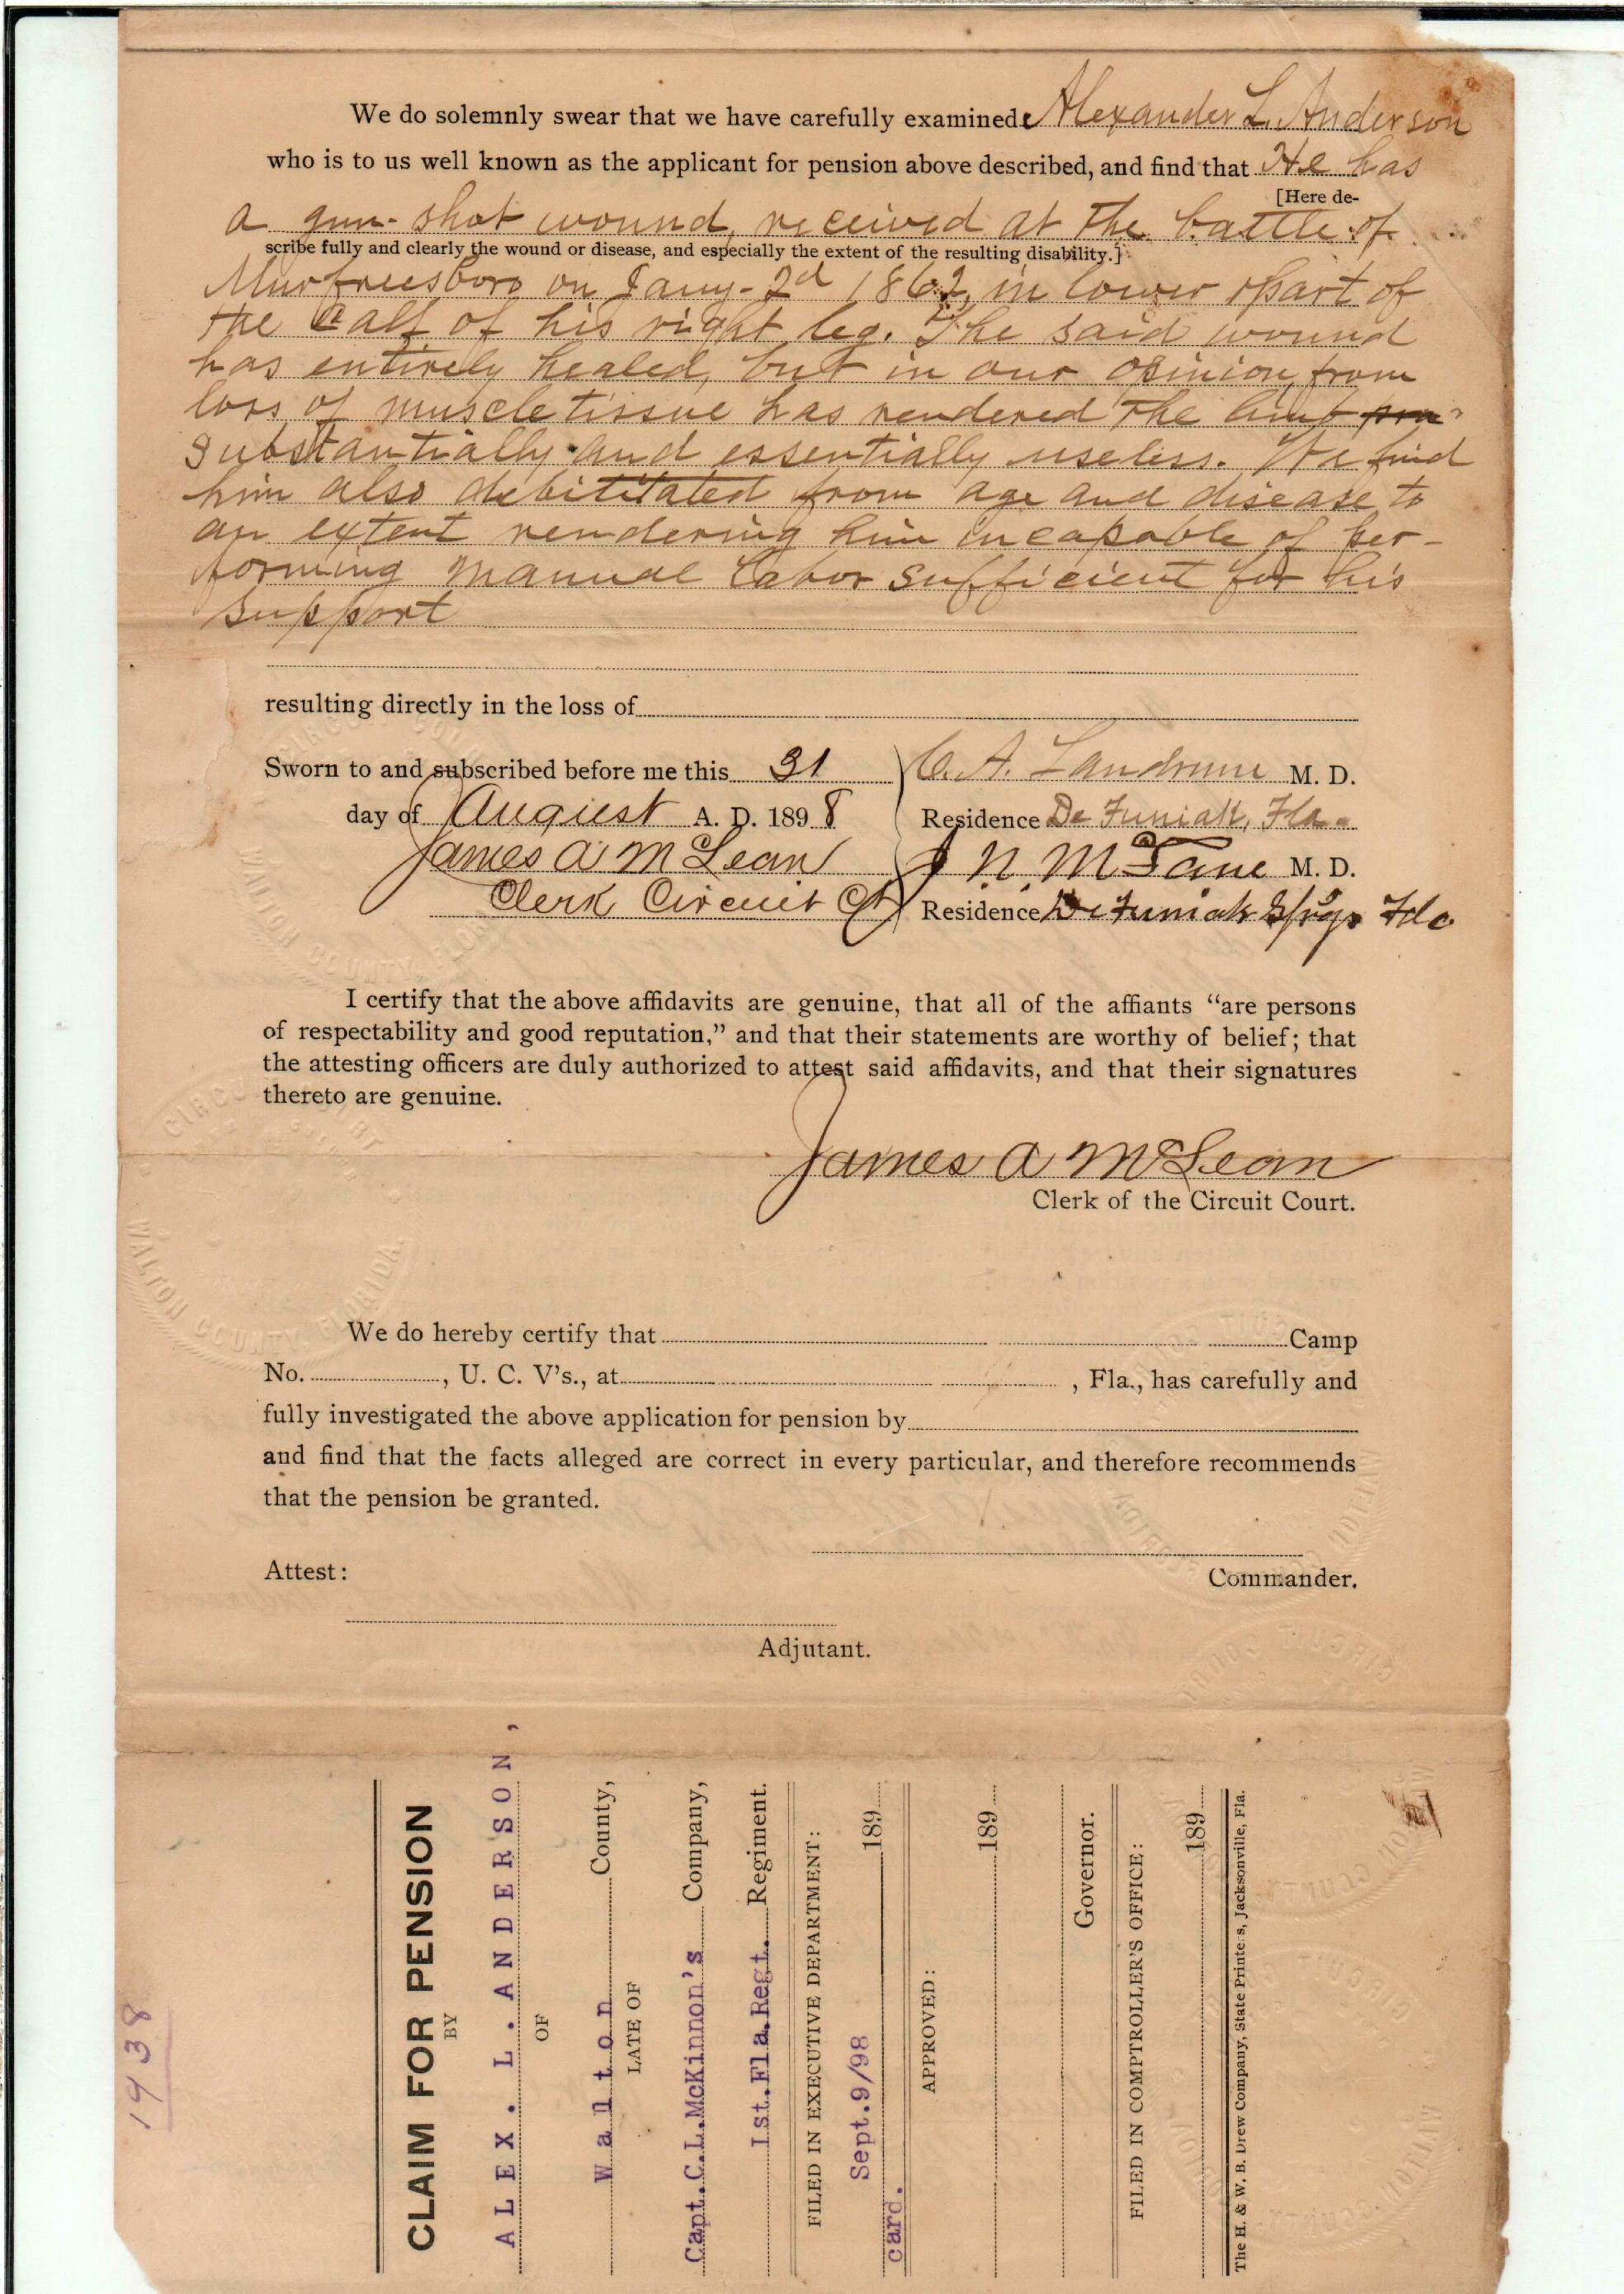 We do solemnly swear that we have carefully examined Alexander L. Anderson
who is to us well known as the applicant for pension above described, and find that He has
[Here de-
a gun-shot wound, received at the battle of
scribe fully and clearly the wound or disease, and especially the extent of the resulting disability.]
Murfreesboro on Jany-2d 1862, in lower part of
the calf of his right leg. The said wound
has entirely healed, but in our opinion, from
loss of muscle tissue has rendered the limb
substantially and essentially useless. We find
him also debilitated from age and disease to
an extent rendering him incapable of per-
forming manual labor sufficient for his
support
resulting directly in the loss of
Sworn to and subscribed before me this 31 C. A. Landrum M. D.
day of August A. D. 1898 Residence De Funiak, Fla-
James A McLean J. N. McLane M. D.
Clerk Circuit Ct Residence De Funiak Spgs Fla
I certify that the above affidavits are genuine, that all of the affiants “are persons
of respectability and good reputation,” and that their statements are worthy of belief; that
the attesting officers are duly authorized to attest said affidavits, and that their signatures
thereto are genuine.
James A McLean
Clerk of the Circuit Court.
We do hereby certify that Camp
No. , U. C. V's., at , Fla., has carefully and
fully investigated the above application for pension by
and find that the facts alleged are correct in every particular, and therefore recommends
that the pension be granted.
Attest:
Commander.
Adjutant.
1938
CLAIM FOR PENSION
BY
ALEX. L. ANDERSON,
OF
Walton County,
LATE OF
Capt. C.L. McKinnon's Company,
1st. Fla. Regt. Regiment.
FILED IN EXECUTIVE DEPARTMENT:
Sept. 9/98 189
card.
APPROVED:
189
Governor.
FILED IN COMPTROLLER'S OFFICE:
189
The H. & W. B. Drew Company, State Printers, Jacksonville, Fla.
CIRCUIT COURT
WALTON COUNTY, FLORIDA.